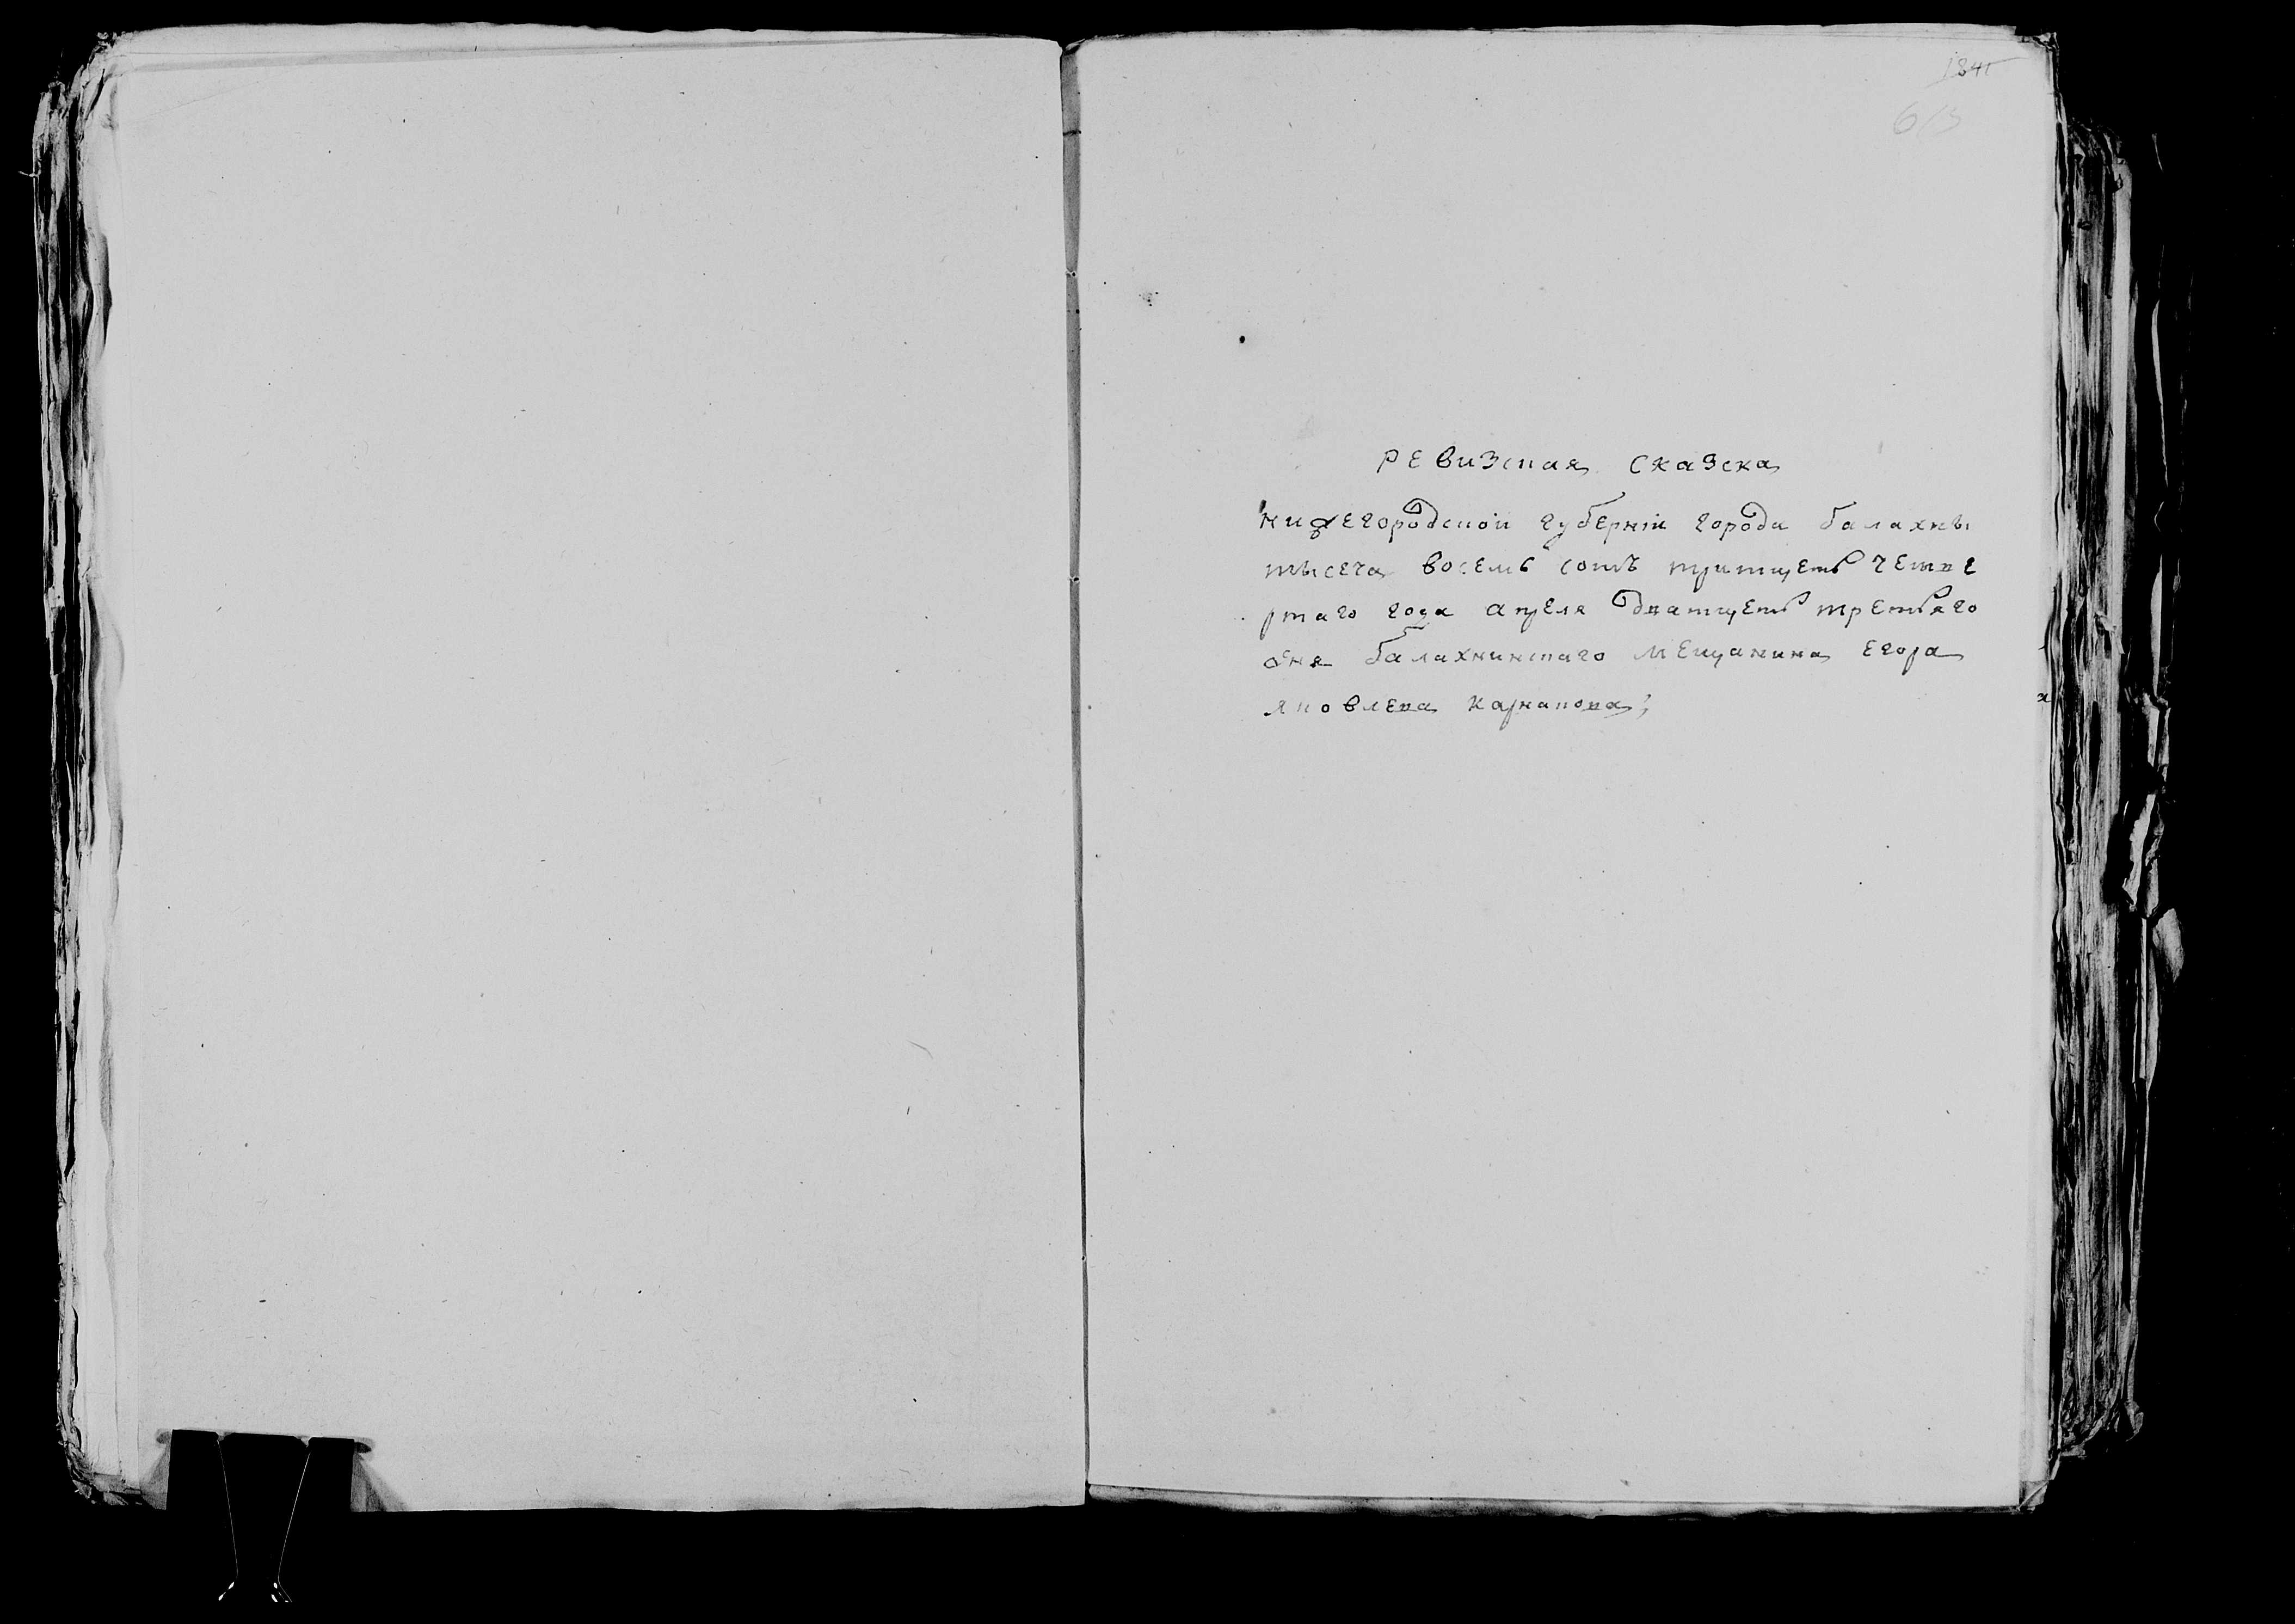 613
ревизская сказска
нижегородской губернiи города балахны
тысеча восемь сотъ тритцеть четве
ртаго года апреля дватцеть третьяго
дня балахнинскаго мещанина егора
яковлева карнаковa;